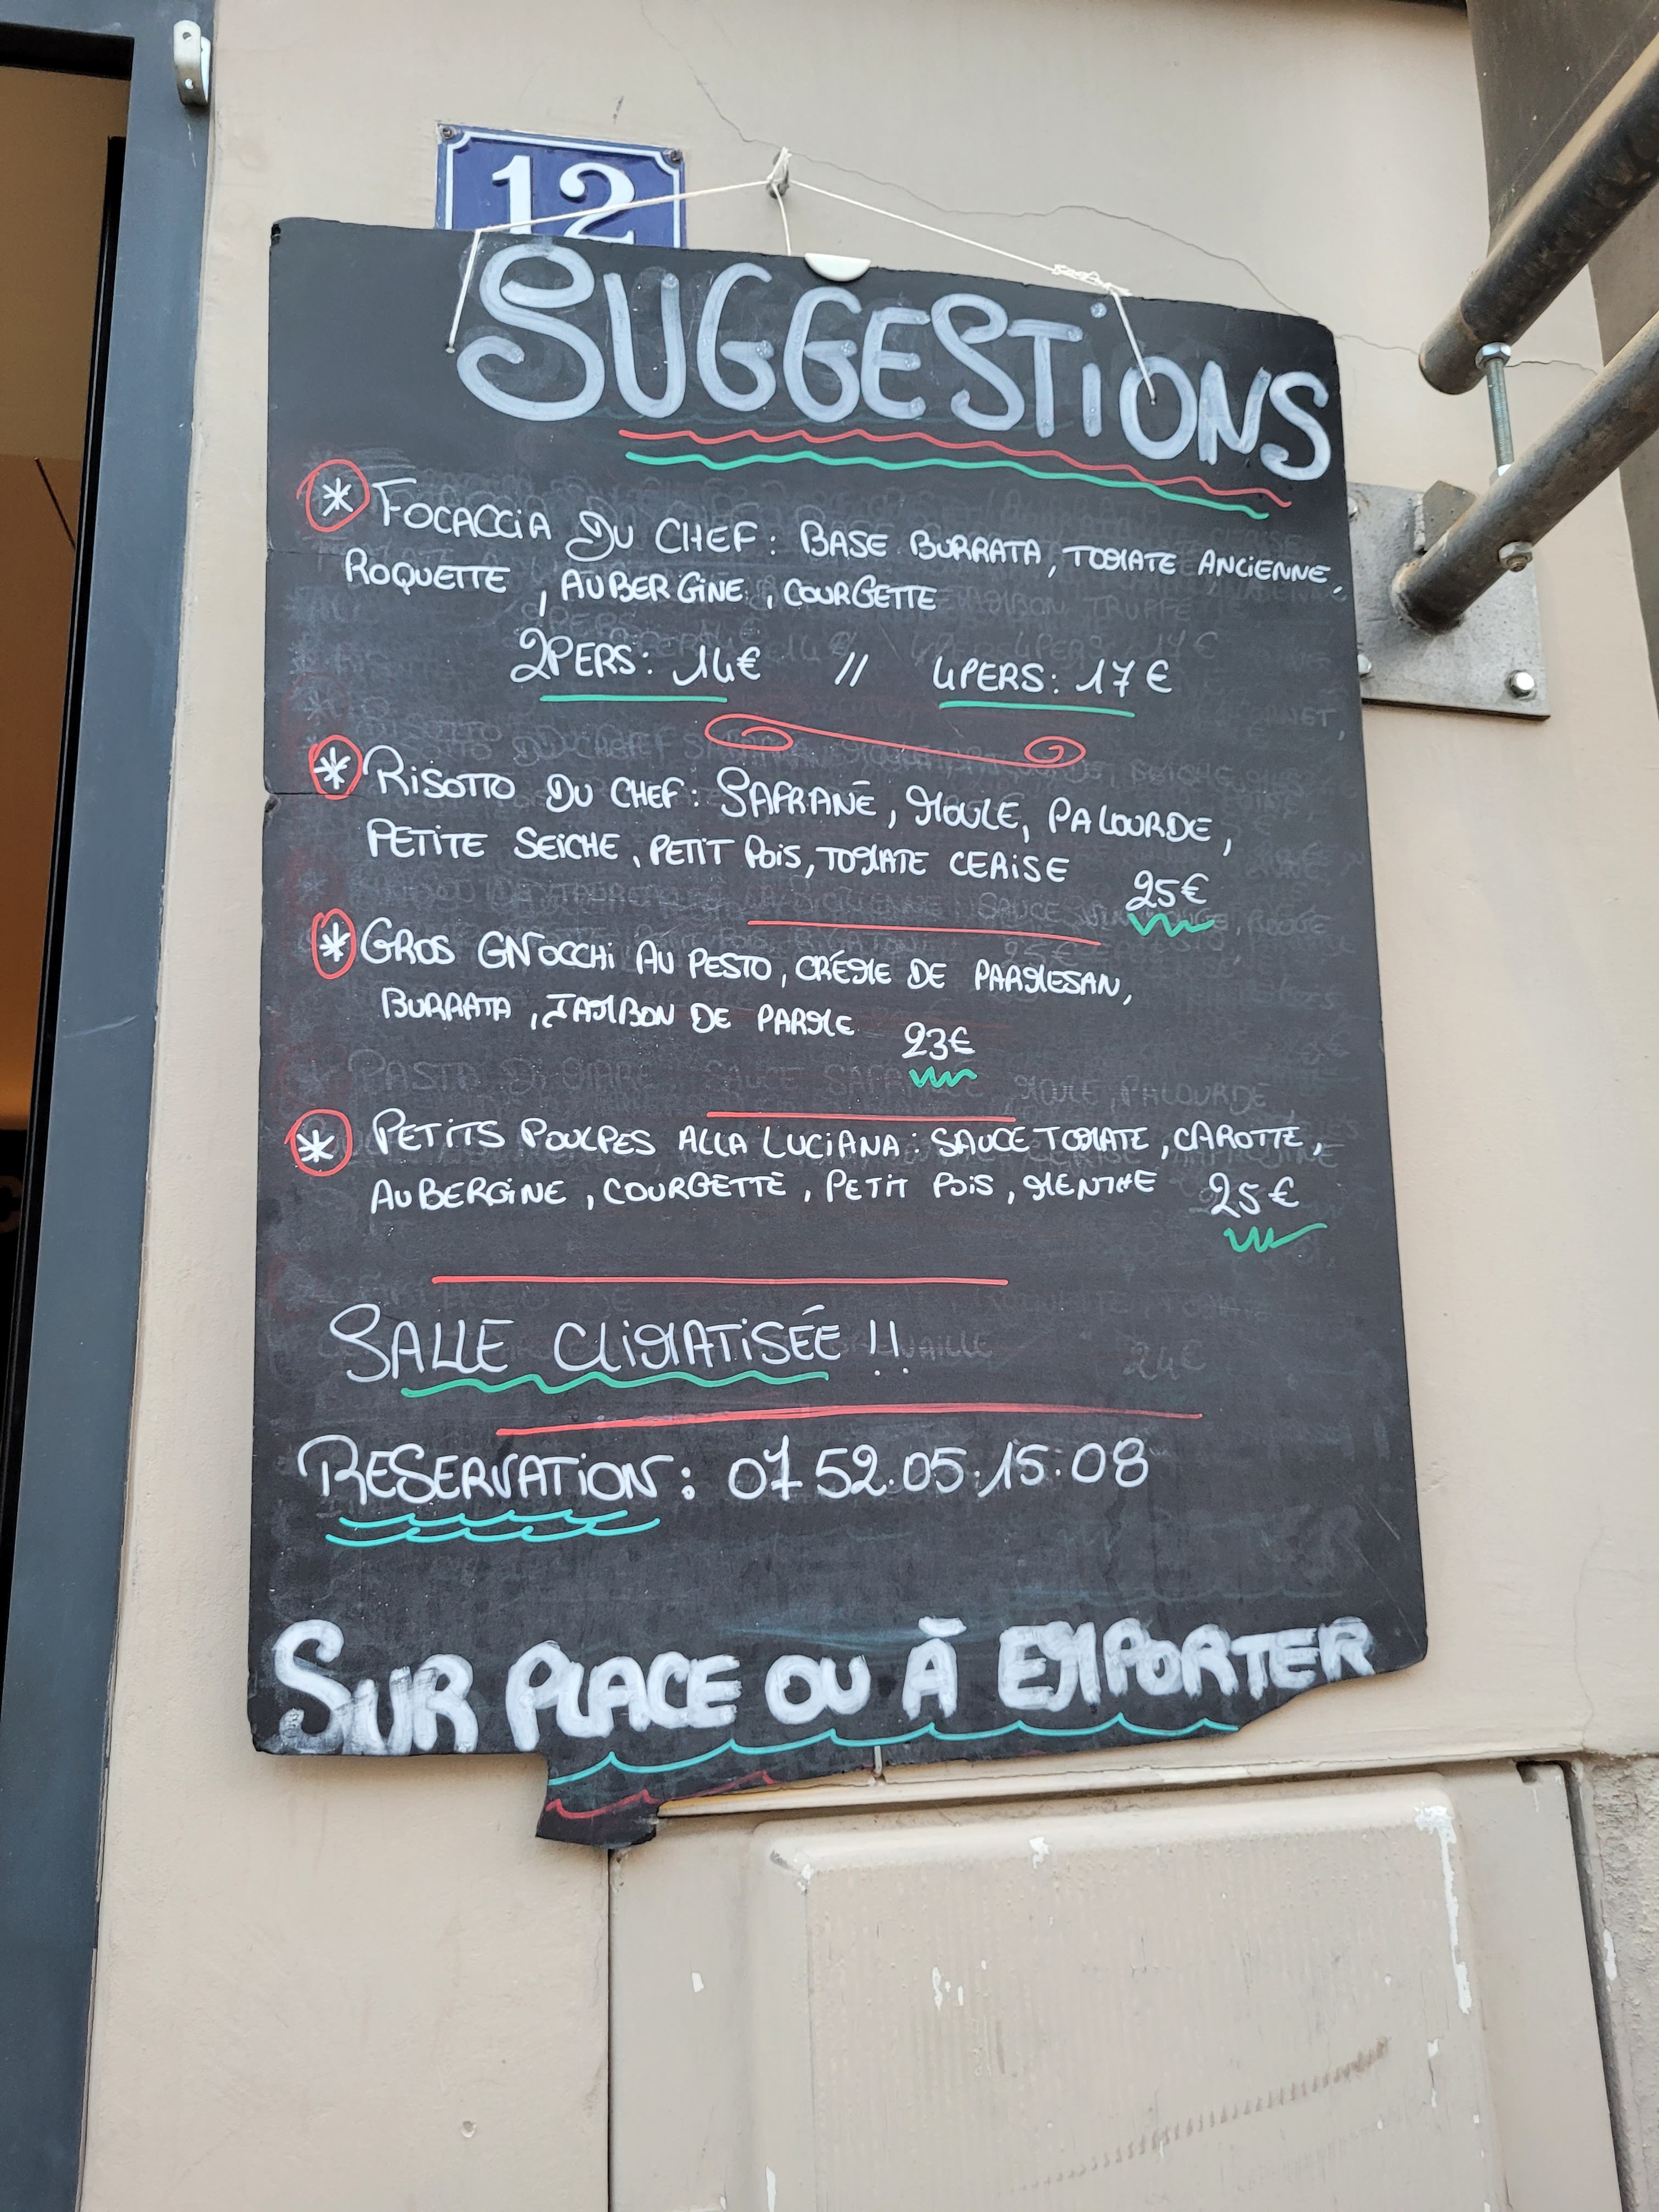 12
SUGGESTIONS
* FOCACCIA DU CHEF : BASE BURRATA, TOMATE ANCIENNE,
ROQUETTE, AUBERGINE, COURGETTE
2PERS: 14€ // 4PERS: 17€
* RISOTTO DU CHEF: SAFRANÉ, MOULE, PALOURDE,
PETITE SEICHE, PETIT POIS, TOMATE CERISE
25€
* GROS GNOCCHI AU PESTO, CRÉME DE PARMESAN,
BURRATA, JAMBON DE PARME
23€
* PETITS POULPES ALLA LUCIANA: SAUCE TOMATE, CAROTTE,
AUBERGINE, COURGETTE, PETIT POIS, MENTHE 25€
SALLE CLIMATISÉE !!
RESERVATION: 07 52.05.15.08
SUR PLACE OU À EMPORTER